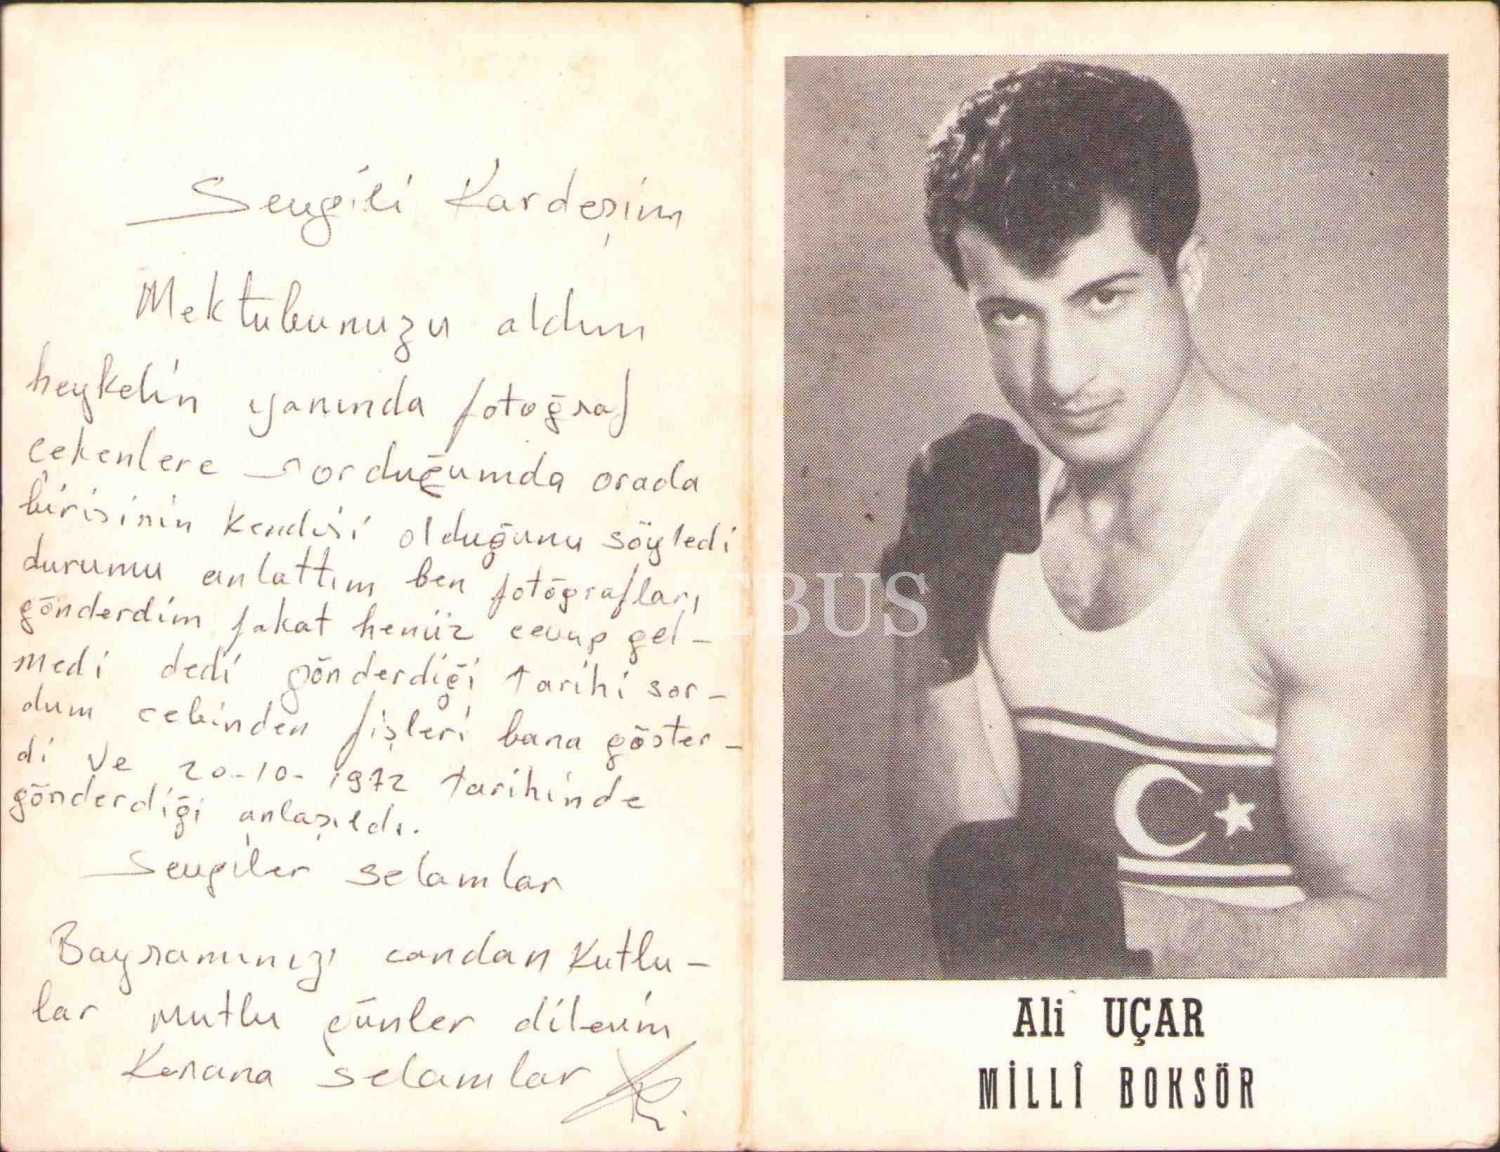 Sevgili Kardeşim
Mektubunuzu aldım
heykelin yanında fotoğraf
çekenlere sorduğumda orada
birisinin kendisi olduğunu söyledi
durumu anlattım ben fotoğrafları
gönderdim fakat henüz cevap gel-
medi dedi gönderdiği tarihi sor-
dum cebinden fişleri bana göster-
di ve 20-10-1972 tarihinde
gönderdiği anlaşıldı.
Sevgiler selamlar
Bayramınızı candan kutlu-
lar mutlu günler dilerim
Kenana selamlar
EBUS
Ali UÇAR
MİLLÎ BOKSÖR